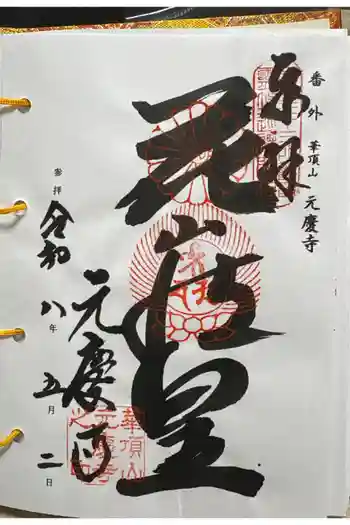 番外 華頂山 元慶寺
奉拝
花山法皇
元慶寺
華頂山
元慶寺
之印
参拝 令和八年五月二日